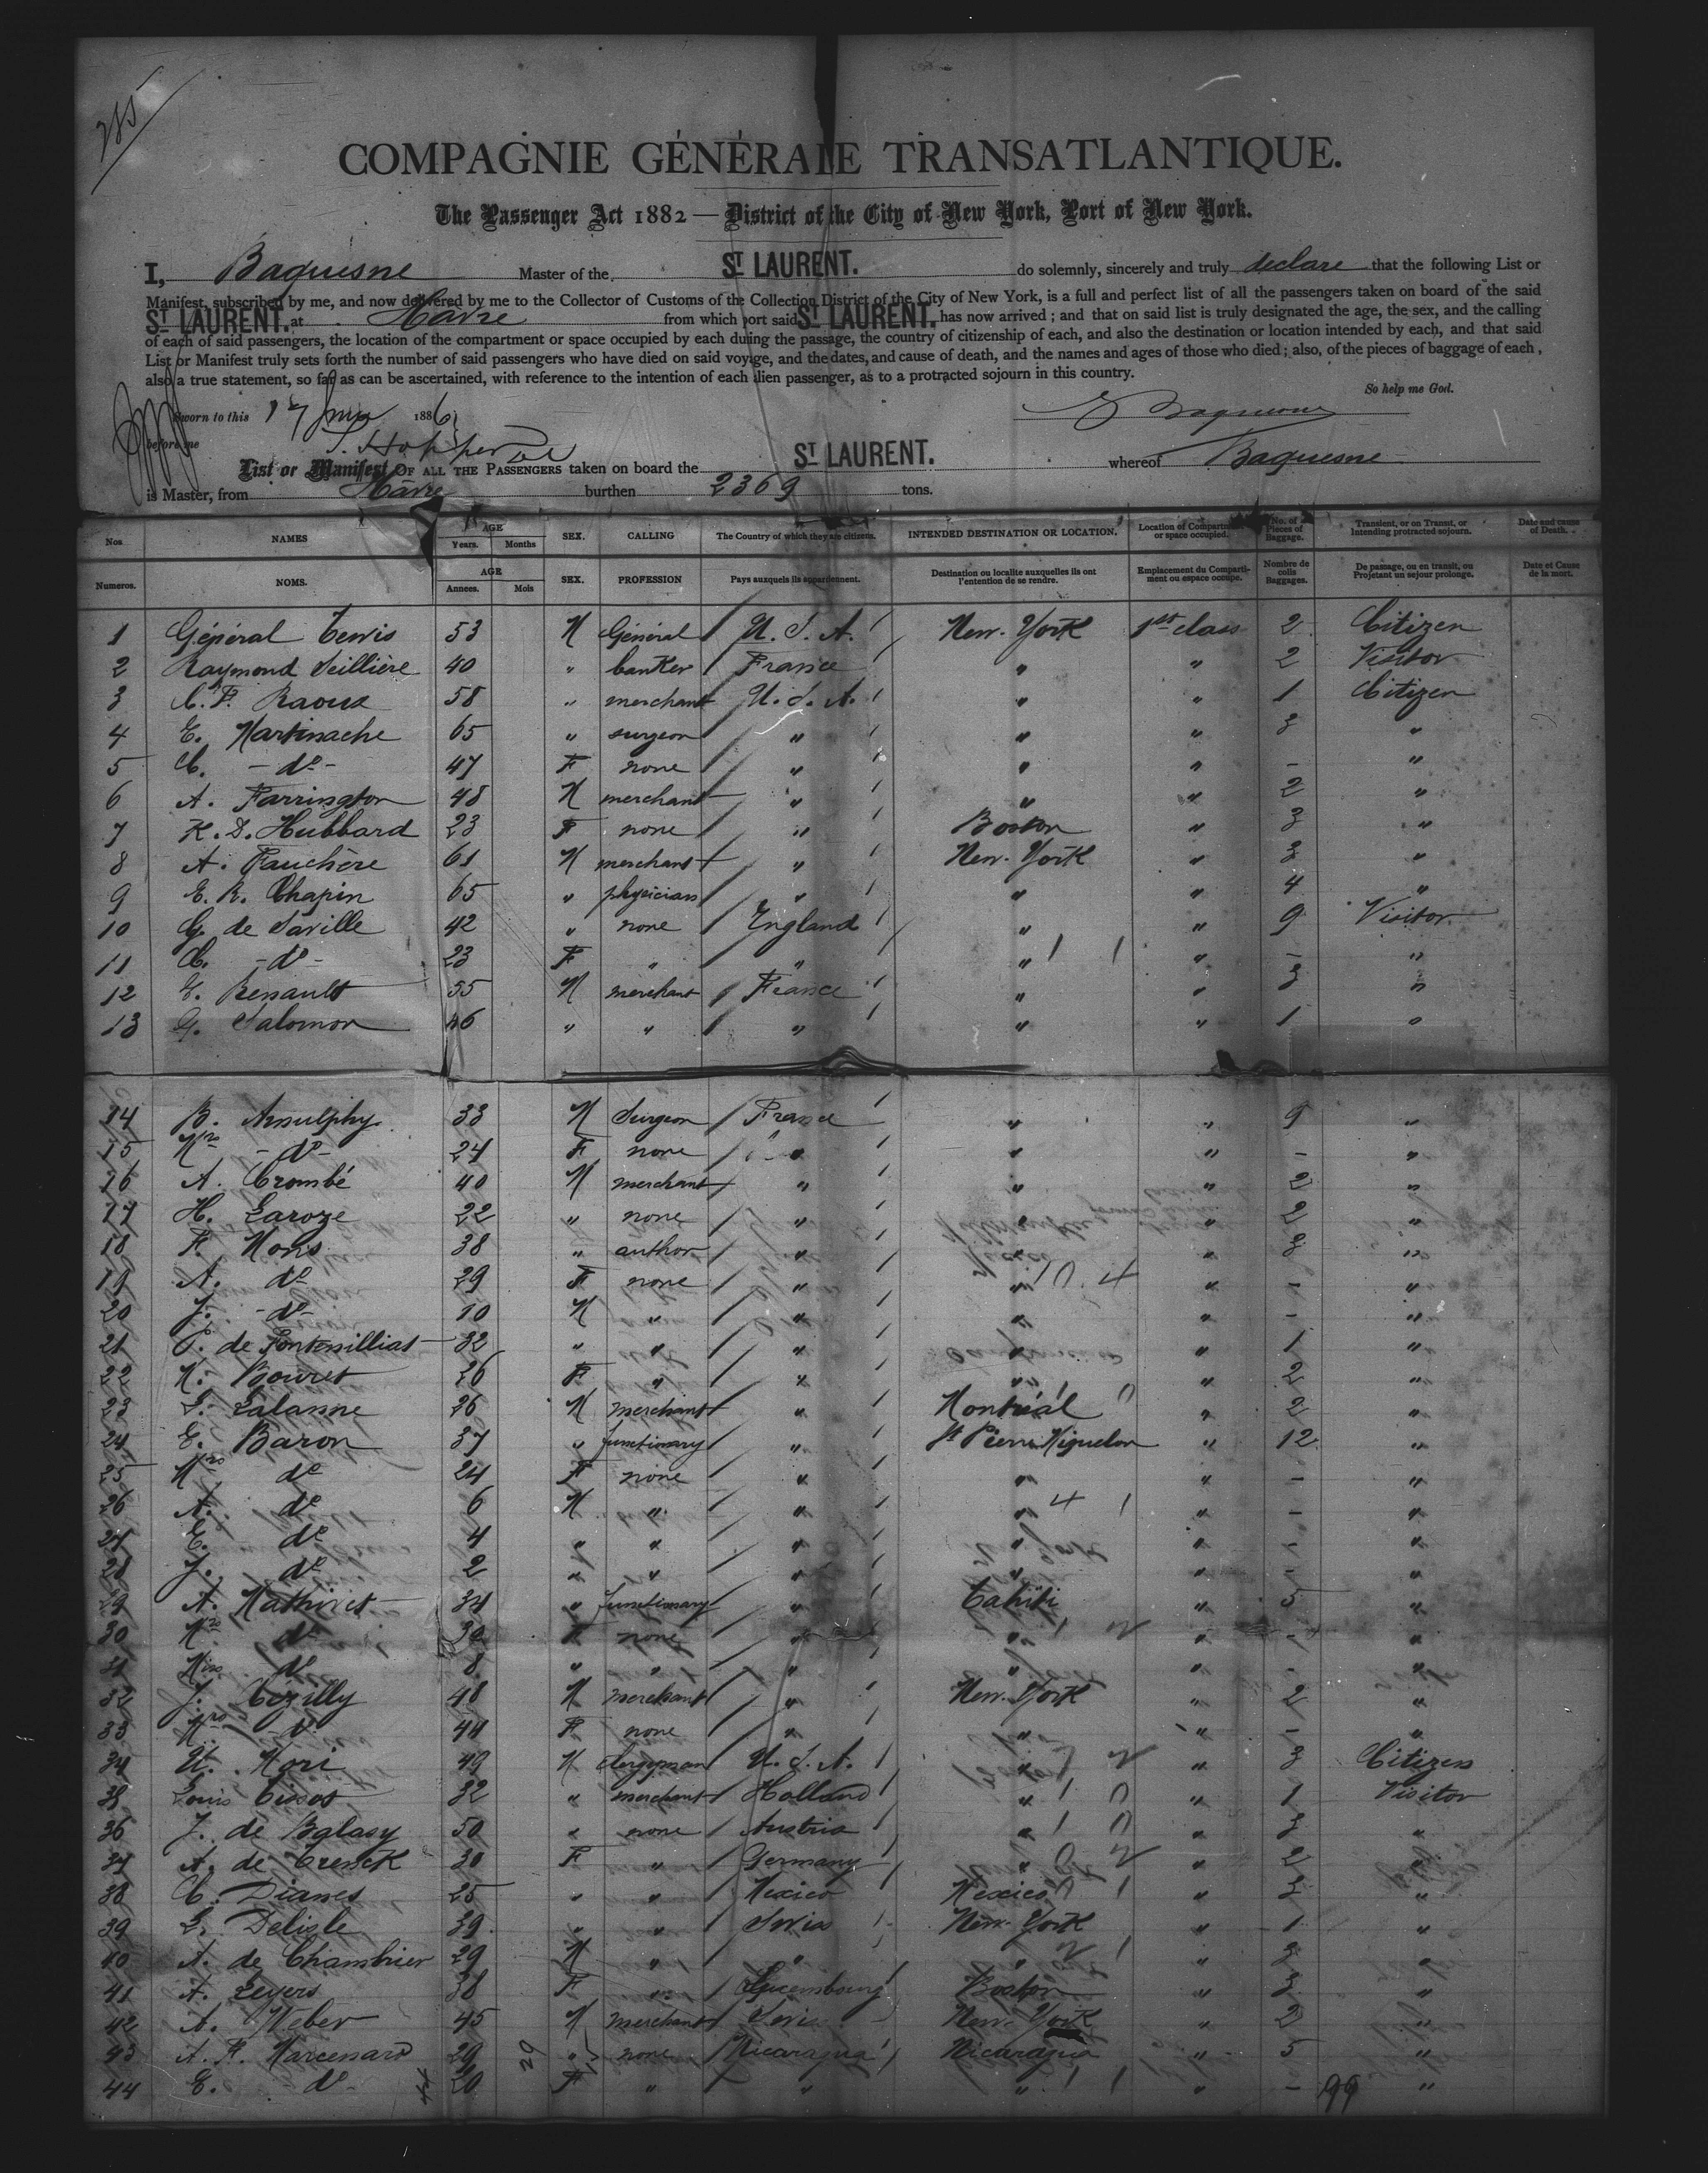 285
COMPAGNIE GÉNÉRALE TRANSATLANTIQUE.
The Passenger Act 1882 — District of the City of New York, Port of New York.
I, Baquesne Master of the ST LAURENT. do solemnly, sincerely and truly declare that the following List or
Manifest, subscribed by me, and now delivered by me to the Collector of Customs of the Collection District of the City of New York, is a full and perfect list of all the passengers taken on board of the said
ST LAURENT. at Havre from which port said ST LAURENT. has now arrived; and that on said list is truly designated the age, the sex, and the calling
of each of said passengers, the location of the compartment or space occupied by each during the passage, the country of citizenship of each, and also the destination or location intended by each, and that said
List or Manifest truly sets forth the number of said passengers who have died on said voyage, and the dates, and cause of death, and the names and ages of those who died; also, of the pieces of baggage of each,
also a true statement, so far as can be ascertained, with reference to the intention of each alien passenger, as to a protracted sojourn in this country.
So help me God.
Sworn to this 17 1886
before me
List or Manifest OF ALL THE PASSENGERS taken on board the ST LAURENT. whereof Baquesne
is Master, from Havre burthen 2369 tons.
Nos NAMES AGE Years. Months SEX. CALLING The Country of which they are citizens. INTENDED DESTINATION OR LOCATION. Location of Compartment or space occupied. No. of Pieces of Baggage. Transient, or on Transit, or Intending protracted sojourn. Date and cause of Death.
Numeros. NOMS. AGE Annees. Mois SEX. PROFESSION Pays auxquels ils appartennent. Destination ou localite auxquelles ils ont l'entention de se rendre. Emplacement du Compartiment ou espace occupe. Nombre de colis Baggages. De passage, ou en transit, ou Projetant un sejour prolonge. Date et Cause de la mort.
1 Général Tewis 53 M Général U.S.A. New-York 1st class 2 Citizen
2 Raymond Seillière 40 " banker France " " 2 Visitor
3 C. F. Raoux 58 " merchant U.S.A. " " 1 Citizen
4 E. Martinache 65 " surgeon " " " 3 "
5 C. -do- 47 F none " " " - "
6 A. Farrington 48 M merchant " " " 2 "
7 K. D. Hubbard 23 F none " Boston " 3 "
8 A. Fauchère 61 M merchant " New-York " 3 "
9 E. R. Chapin 65 " physician " " " 4 "
10 G. de Saville 42 " none England " " 9 Visitor
11 C. -do- 23 F " " " " - "
12 E. Renault 55 M merchant France " " 3 "
13 G. Salomon 46 " " " " " 1 "
14 B. Arnulphy 33 M Surgeon France " " 9 "
15 Mrs -do- 24 F none " " " - "
16 A. Crombé 40 M merchant " " " 2 "
17 H. Laroze 22 " none " " " 2 "
18 F. Mons 38 " author " " " 3 "
19 A. do 29 F none " " " - "
20 J. -do- 10 M " " " " - "
21 P. de Fontenilliat 32 " " " " " 1 "
22 M. Bouret 26 F " " " " 2 "
23 L. Lalanne 26 M merchant " Montréal " 2 "
24 E. Baron 37 " functionary " St Pierre Miquelon " 12 "
25 Mrs do 24 F none " " " - "
26 A. do 6 M " " " " - "
27 E. do 4 " " " " " - "
28 J. do 2 " " " " " - "
29 A. Mathivet 34 " functionary " Tahiti " 5 "
30 Mrs do 30 F none " " " - "
31 Miss do 8 " " " " " - "
32 J. Cizilly 48 M merchant " New-York " 2 "
33 Mrs do 44 F none " " " - "
34 U. Mori 49 M clergyman U.S.A. " " 3 Citizen
35 Louis Tissot 32 " merchant Holland " " 1 Visitor
36 J. de Bglasy 50 " none Austria " " 3 "
37 A. de Trenck 30 F " Germany " " 2 "
38 C. Dianes 25 " " Mexico Mexico " 3 "
39 L. Delisle 39 " " Swiss New-York " 1 "
40 A. de Chambrier 29 M " " " " 3 "
41 A. Leyers 38 F " Luxembourg Boston " 3 "
42 A. Weber 45 M merchant Swiss New-York " 2 "
43 A. F. Marcenaro 29 " none Nicaragua Nicaragua " 5 "
44 E. -do- 20 F " " " " - "
99